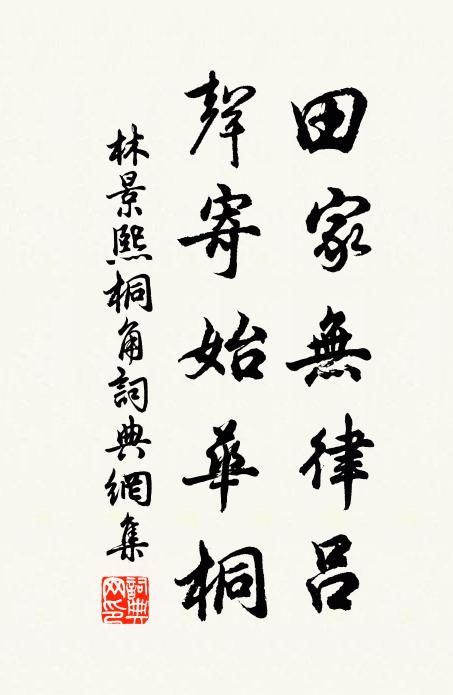 田家無律呂
聲寄始華桐
林景熙桐角詞典網集
詞典網印